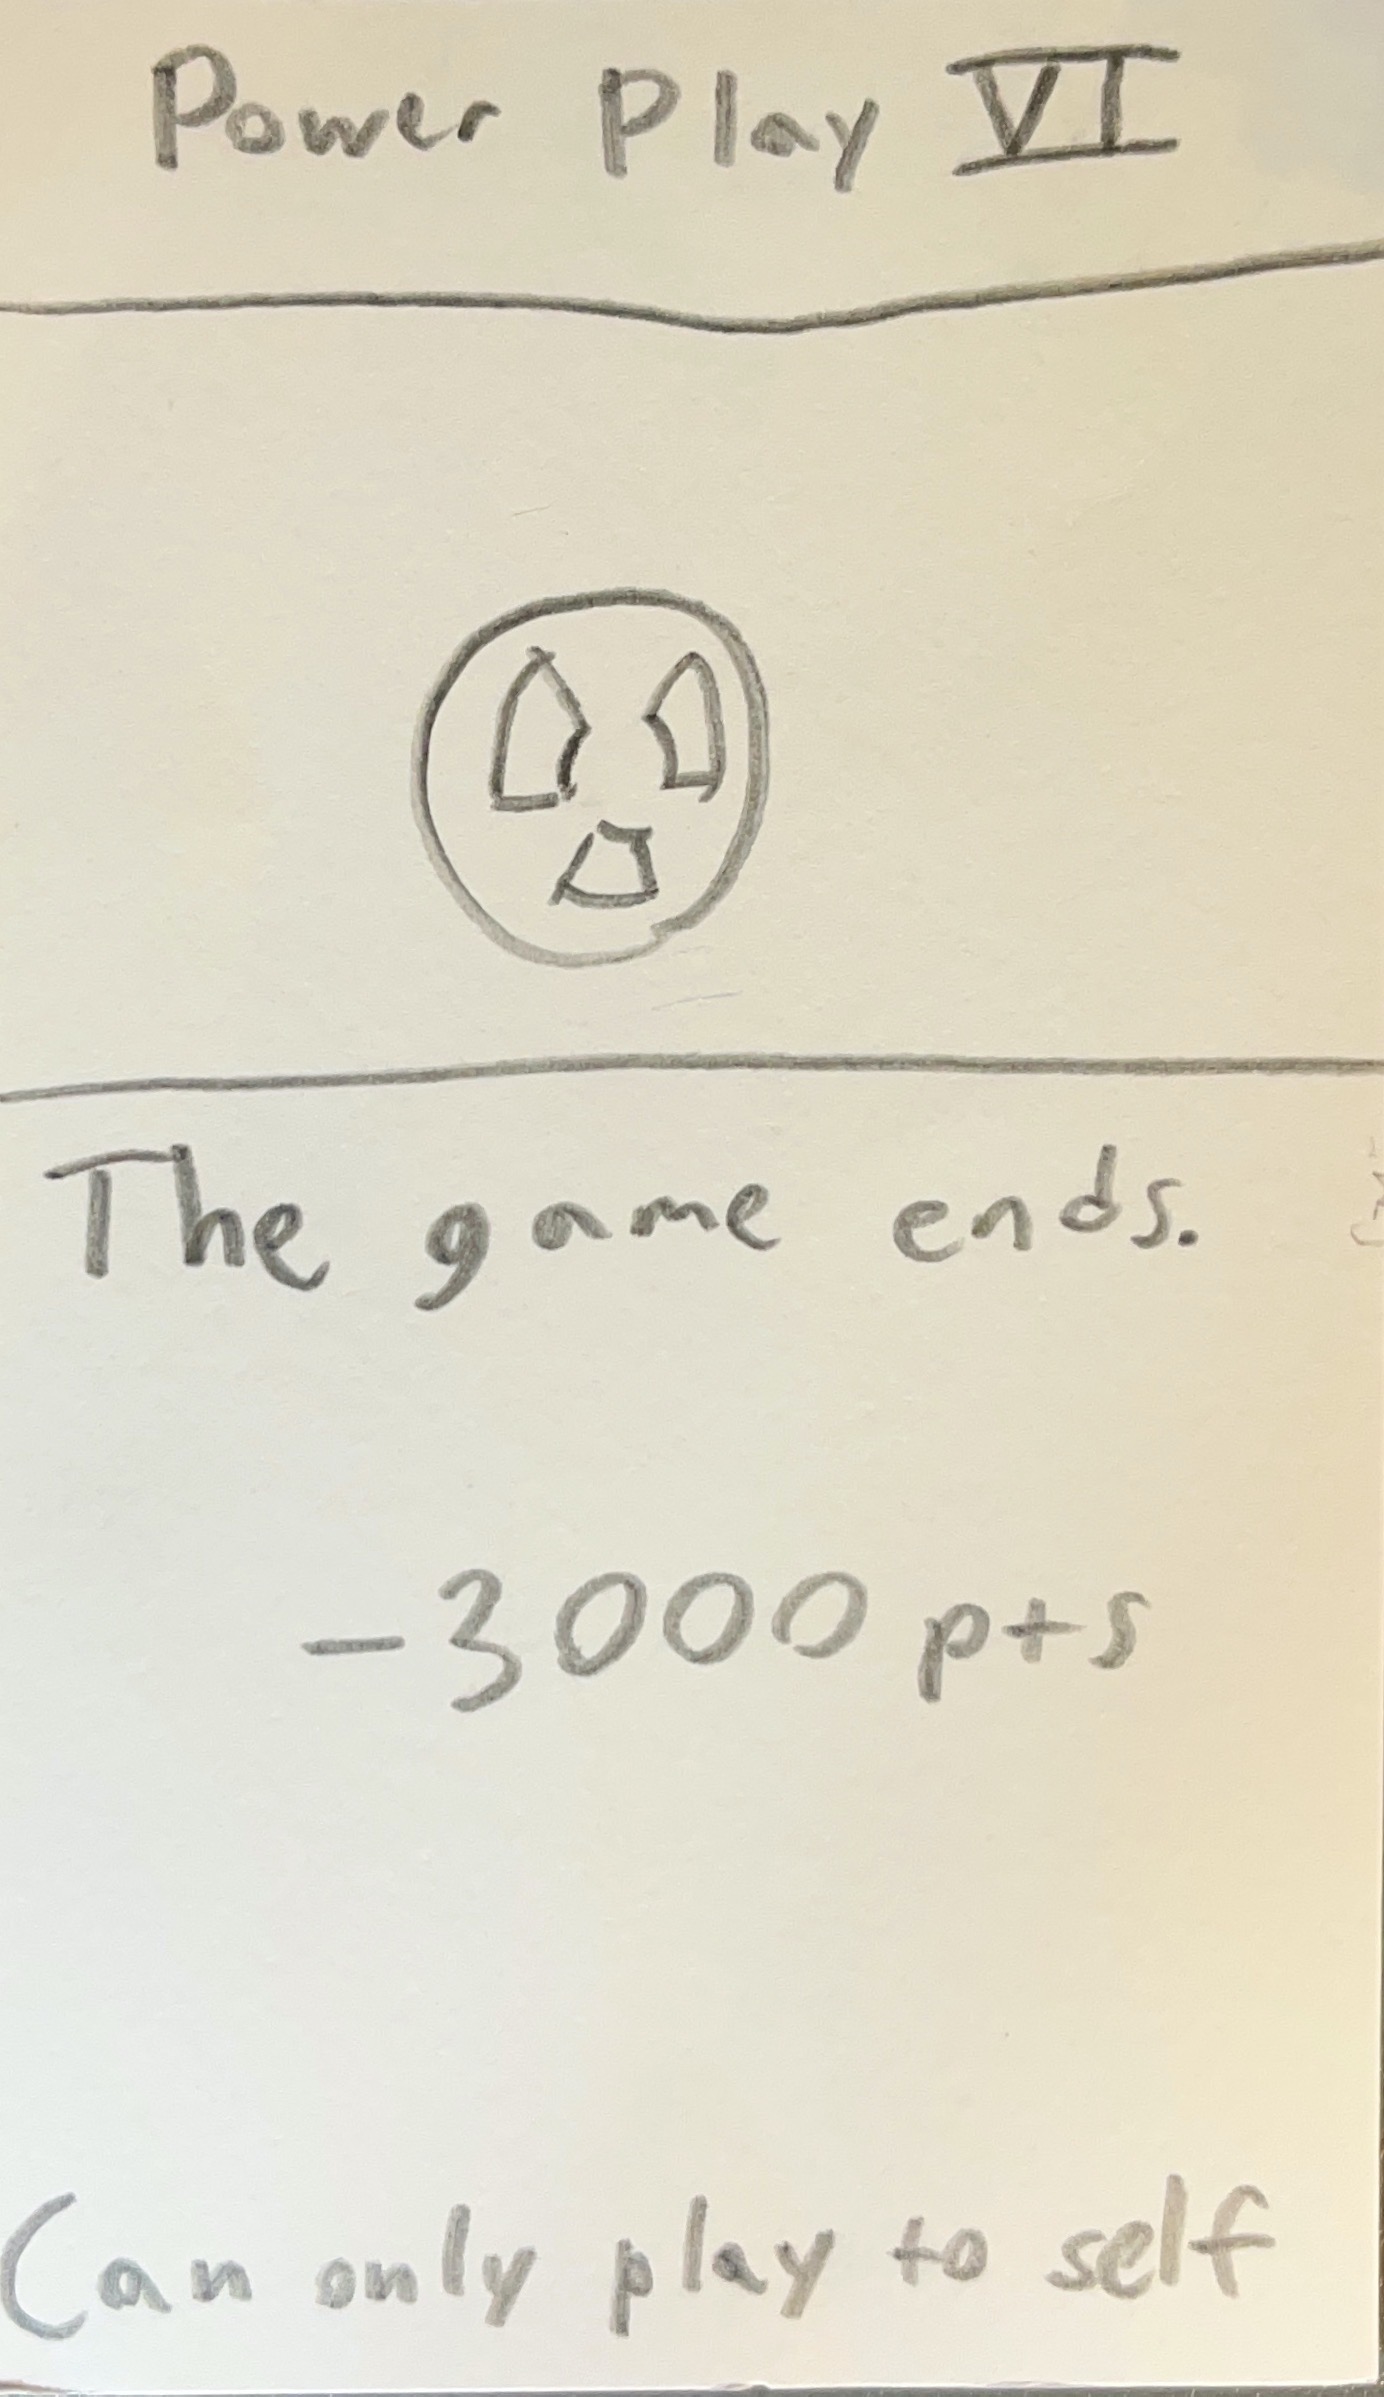 Power Play VI
The game ends.
-3000 pts
Can only play to self